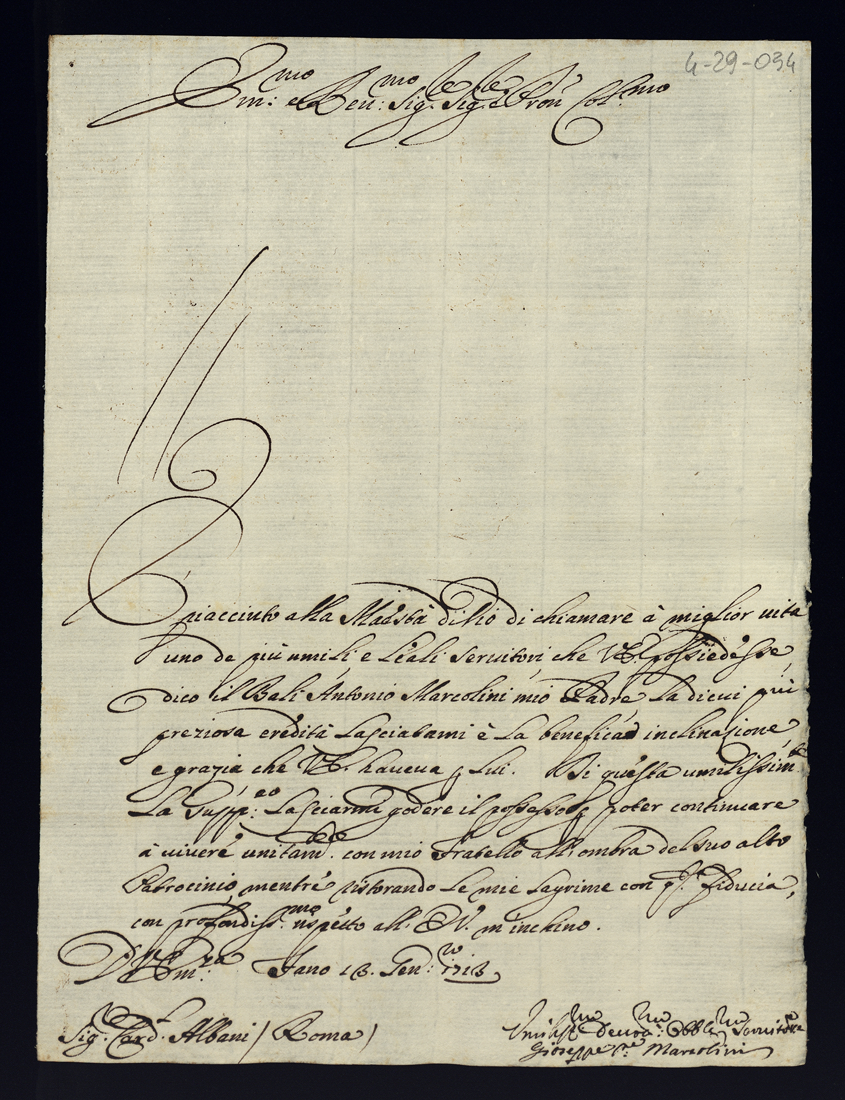 4-29-034
Em:mo e Reu:mo Sig.re Sig.re e Pron Col:mo
È piacciuto alla Maestà di Dio di chiamare à miglior uita
uno de più umili e leali seruitori che VE. possedesse,
dico il Balì Antonio Marcolini mio Padre, La di cui più
preziosa eredità Lasciatami è La benefica inclinazione,
e grazia che VE. haueua p lui. Di questa umilissim.te
La supp:co Lasciarmi godere il possesso p poter continuare
à uiuere unitam.te con mio fratello all'ombra del suo alto
Patrocinio, mentre ristorando Le mie Lagrime con q.ta fiducia,
con profondiss:mo rispetto all' EV. m'inchino.
D V Em:za Fano 13. Gen:ro 1713
Sig.r Card.l Albani / Roma /
Umiliss.mo Deuot:mo Obblig.mo Seruitore
Giuseppe Marcolini